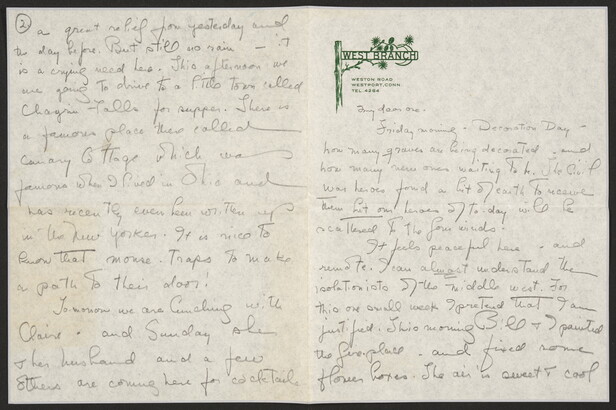 WEST BRANCH
WESTON ROAD
WESTPORT, CONN.
TEL. 4284
My dear one.
Friday morning - Decoration Day -
how many graves are being decorated - and
how many new ones waiting to be. The Civil
War heroes found a bit of earth to receive
them but our heroes of to-day will be
scattered to the four winds.
It feels peaceful here - and
remote. I can almost understand the
isolationists of the middle west. For
this one small week I pretend that I am
just. This morning Bill & I painted
the fireplace - and fixed some
flower boxes. The air is sweet & cool
2
a great relief from yesterday and
the day before. But still no rain - it
is a crying need here. This afternoon we
are going to drive to a little town called
Chagrin Falls for supper. There is
a famous place there called
Canary Cottage which was
famous when I lived in Ohio and
has recently even been written up
in the New Yorker. It is nice to
know that mouse. Traps do make
a path to their door!
Tomorrow we are lunching with
Claire - and Sunday she
& her husband and a few
others are coming here for cocktails